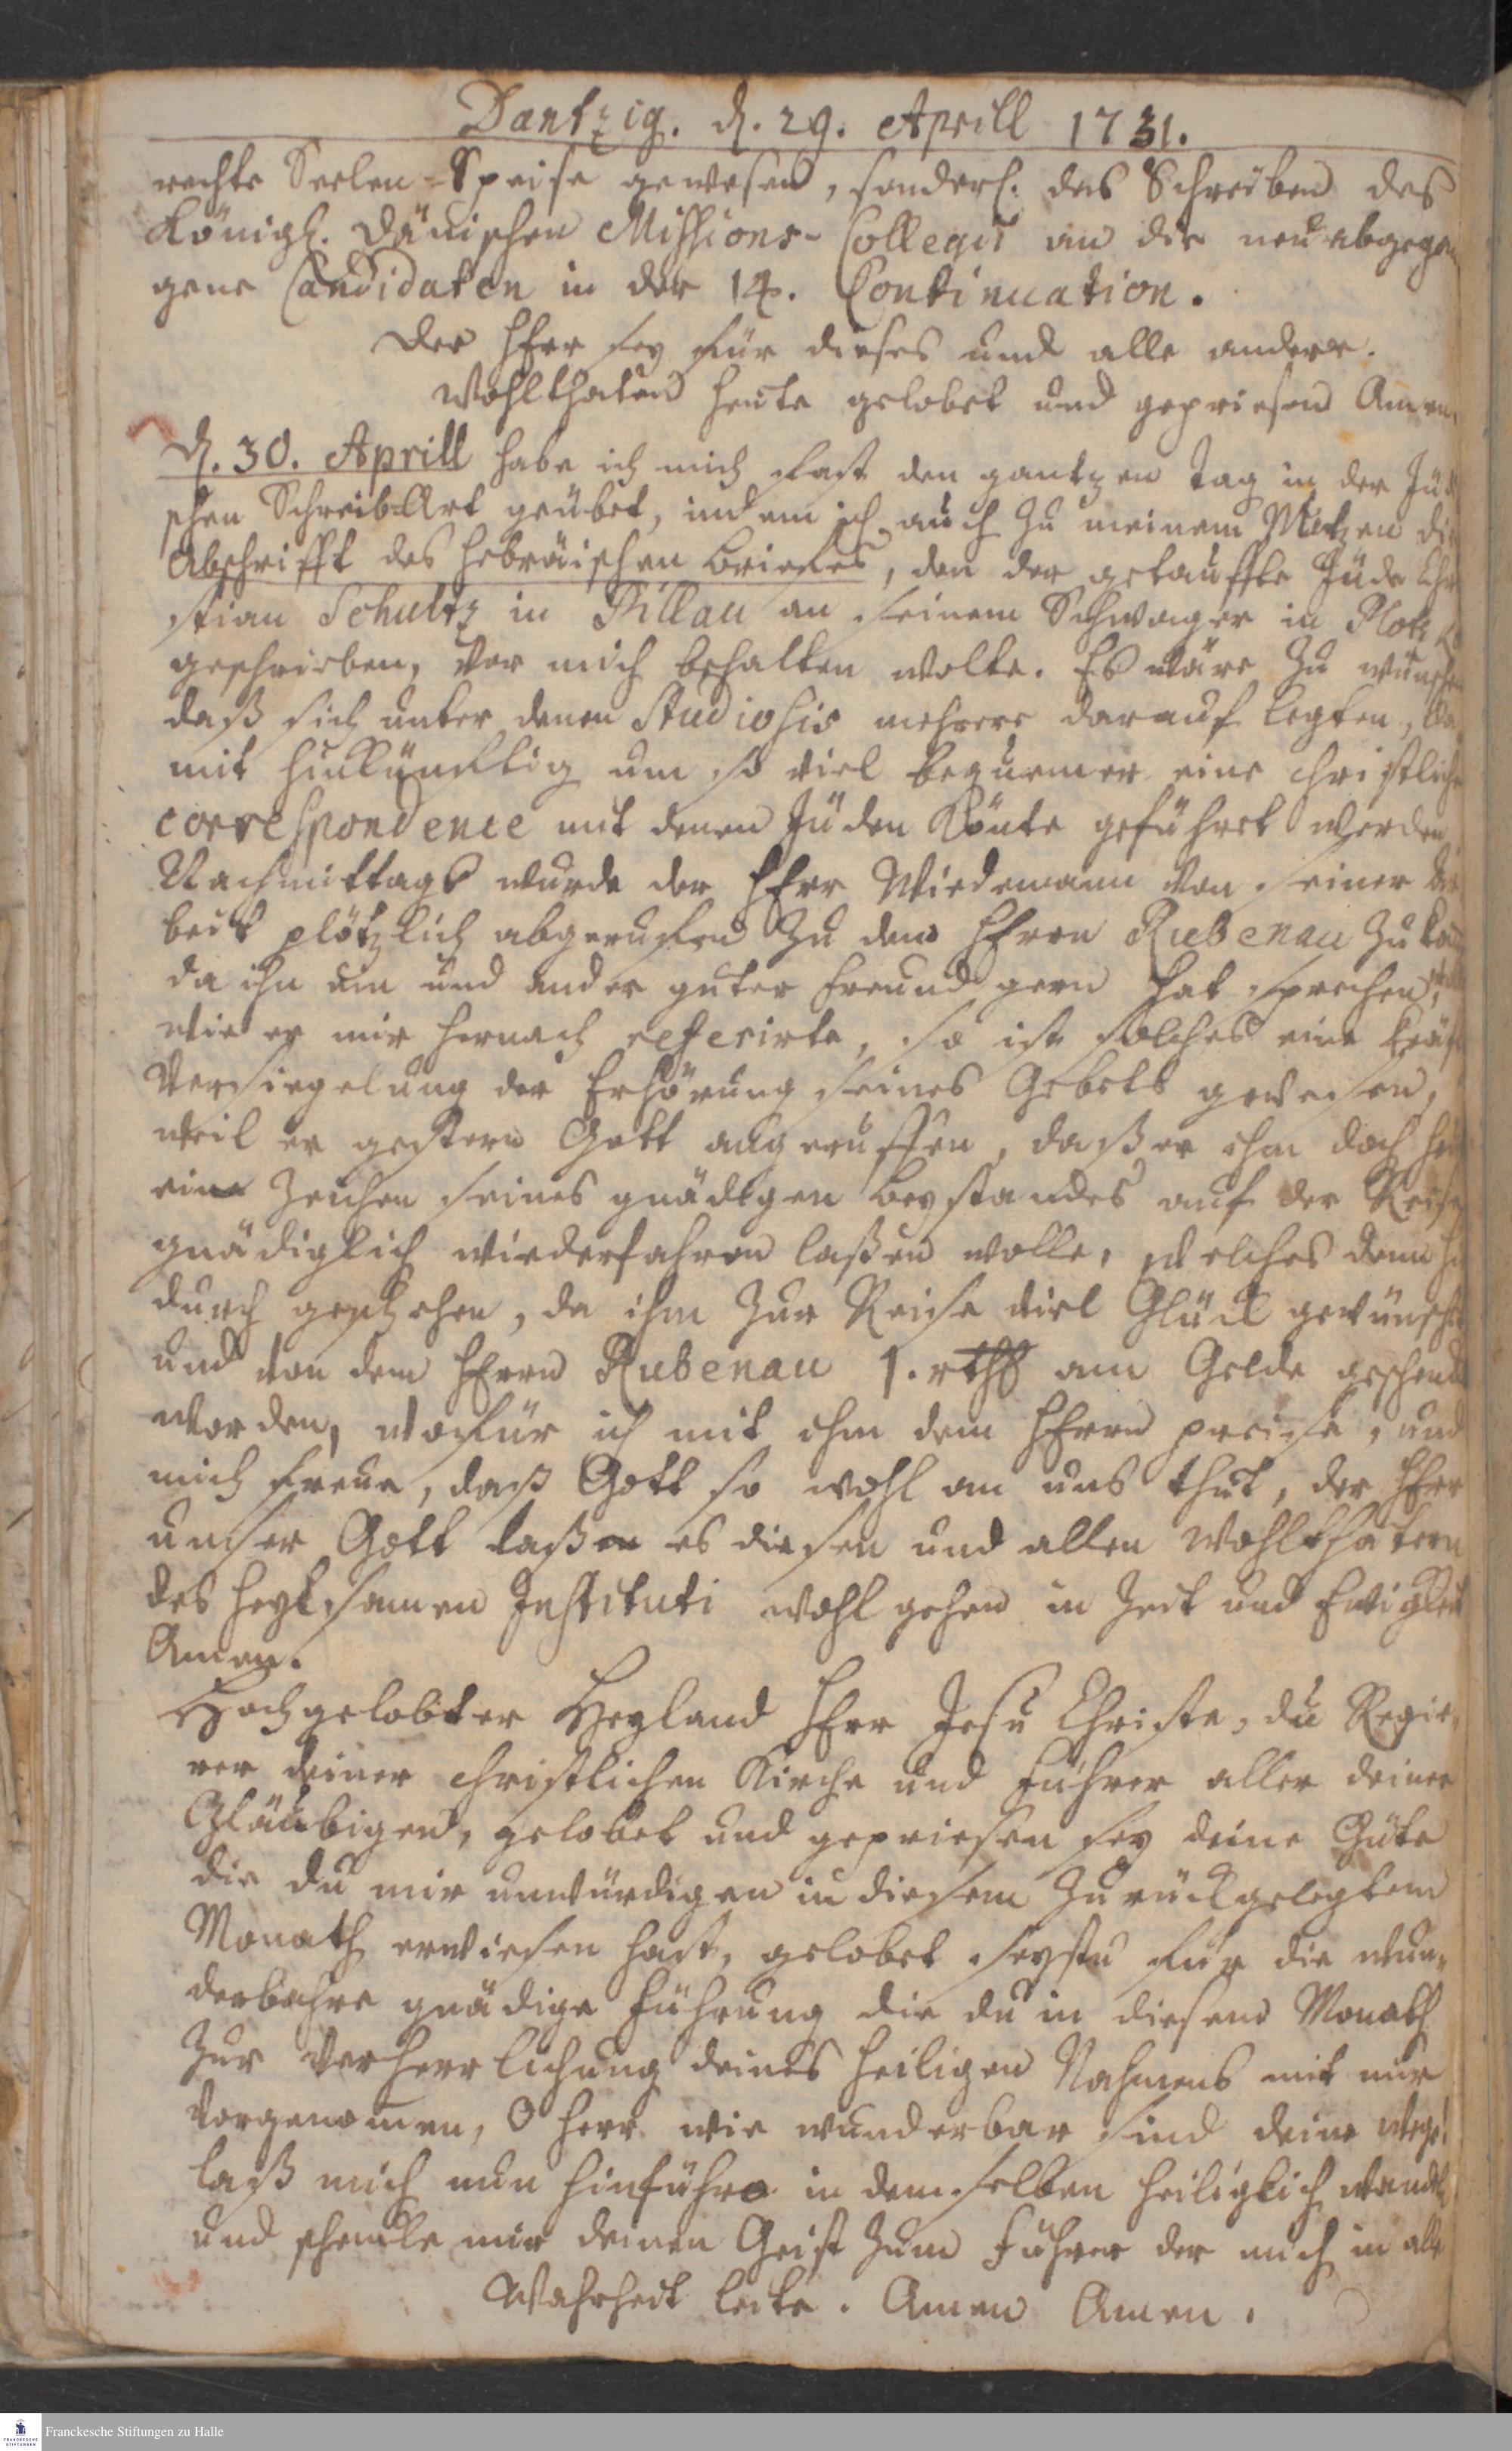 Dantzig. d. 29. Aprill 1731.
rechte Seelen-Speise gewesen, sonderl. das Schreiben des
Königl. Dänischen Missions-Collegii an die neu abgegan
gene Candidaten in der 14. Continuation.
Der HErr sey für dieses und alle andere
Wohlthaten heute gelobet und gepriesen Amen.
d. 30. Aprill habe ich mich fast den gantzen Tag in der Jüdi
schen Schreib-Art geübet, indem ich auch zu meinem Nutzen die
Abschrifft des hebräischen Briefes, den der getauffte Jüde Chri
stian Schultz in Pillau an seinem Schwager in
geschrieben, vor mich behalten wolte. Es wäre zu wünschen
daß sich unter denen Studiosis mehrere darauf legten, da
mit hinkünfftig um so viel bequemer eine christliche
correspondence mit denen Jüden könte geführet werden.
Nachmittags wurde der HErr Wiedemann von seiner Ar
beit plötzlich abgeruffen zu dem HErrn Rubenau zu kom
da ihn ein und ander guter Freund gern hat sprechen
wie er mir hernach referirte, so ist solches eine kräft
Versiegelung der Erhörung seines Gebets gewesen,
weil er gestern Gott angeruffen, daß er ihm doch heu
ein Zeichen seines gnädigen Beystandes auf der Reise
gnädiglich wiederfahren laßen wolle, welches denn hie
durch geschehen, da ihm zur Reise viel Glück gewünscht
und von dem HErrn Rubenau 1. rthl am Gelde geschenckt
worden, wofür ich mit ihm dem HErrn preise, und
mich freue, daß Gott so wohl an uns thut, der HErr
unser Gott laße es diesen und allen Wohlthätern
des heylsamen Instituti wohl gehen in Zeit und Ewigkeit
Amen.
Hochgelobter Heyland HErr Jesu Christe, du Regie-
rer deiner christlichen Kirche und Führer aller deiner
Gläubigen, gelobet und gepriesen sey deine Güte
die du mir unwürdigen in diesem zurückgelegtem
Monath erwiesen hast, gelobet seystu für die wun-
derbahre gnädige Führung die du in diesem Monath
zur Verherrlichung deines heiligen Nahmens mit mir
vorgenommen, O Herr wie wunderbar sind deine Wege!
laß mich nun hinführo in demselben heiliglich wandeln
und schencke mir deinen Geist zum Führer der mich in alle
Wahrheit leite. Amen Amen.
Franckesche Stiftungen zu Halle